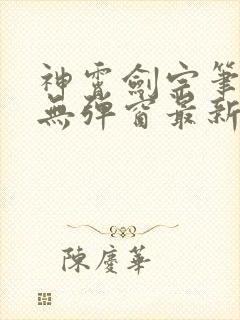 神霄劍宗筆
無彈窗最新
陳慶華